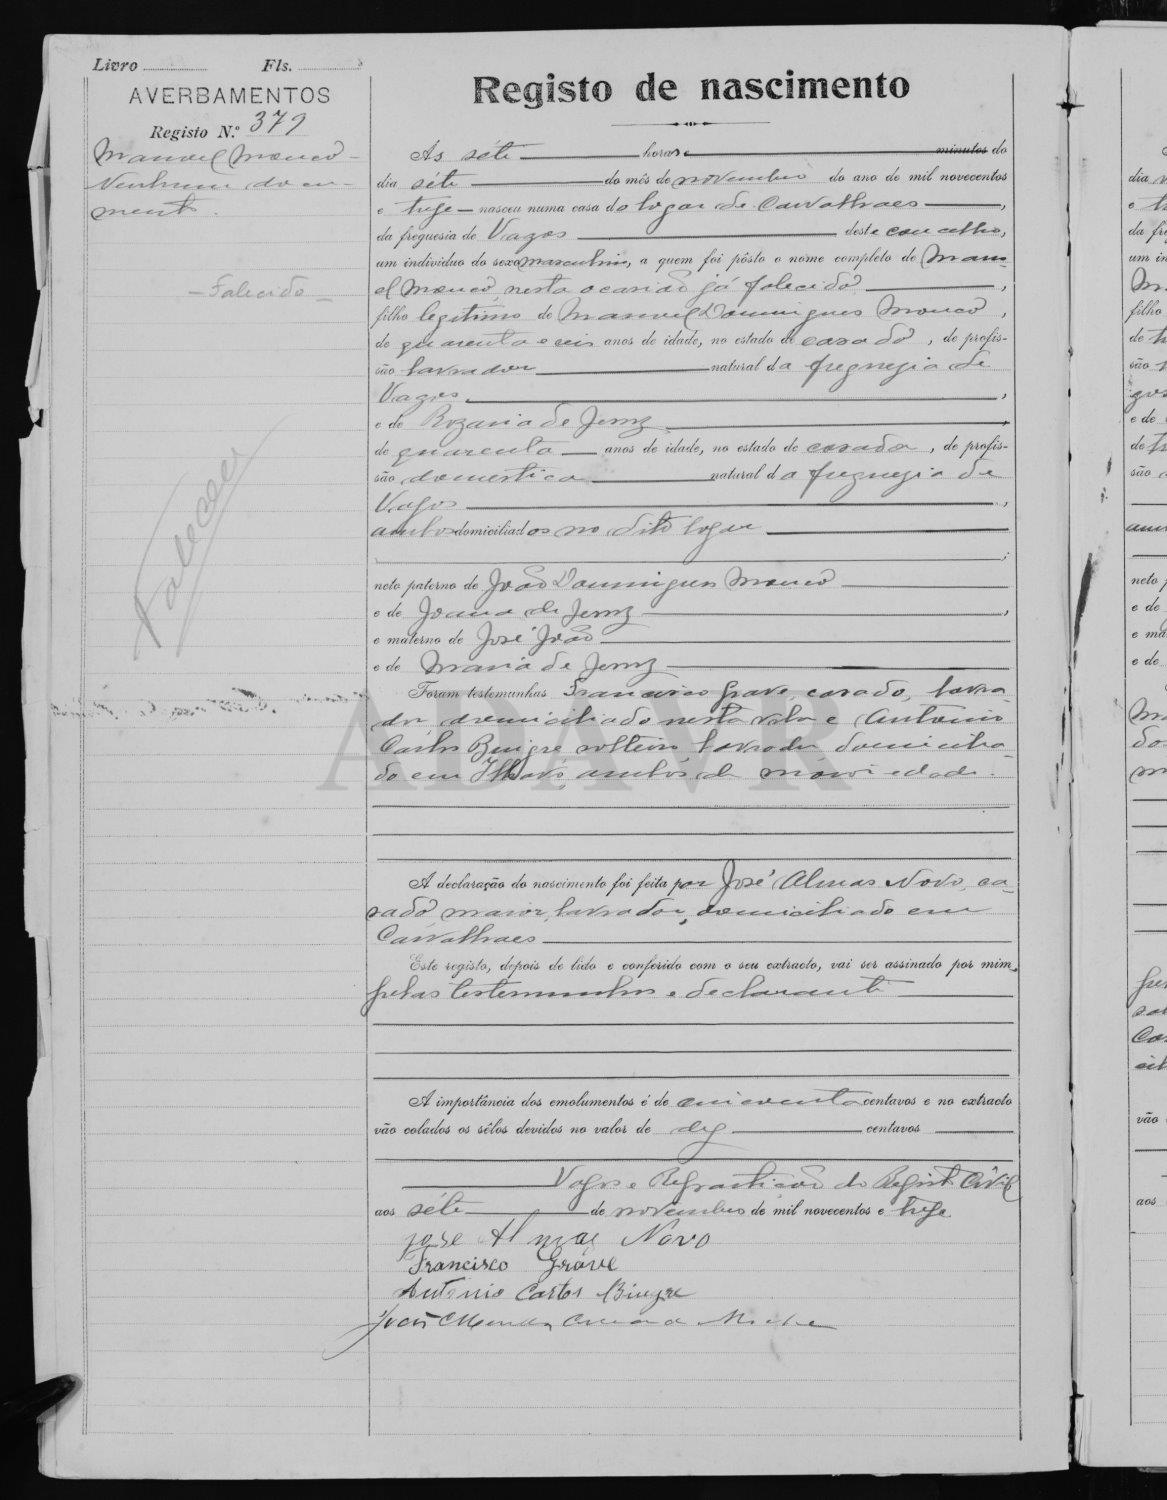 Livro Fls.
AVERBAMENTOS
Registo N.º 379
Manuel Mouco -
Nenhum docu-
mento.
- Falecido -
Faleceu
Registo de nascimento
As séte horas e minutos do
dia séte do mês de novembro do ano de mil novecentos
e treze - nasceu numa casa do logar de Carvalhaes,
da freguesia de Vagos deste concelho,
um individuo do sexo masculino, a quem foi pôsto o nome completo de Manu-
el Mouco, nesta ocasião já falecido,
filho legitimo de Manuel Domingues Mouco,
de quarenta e seis anos de idade, no estado de casado, de profis-
são lavrador natural da freguezia de
Vagos,
e de Rozaria de Jesuz
de quarenta anos de idade, no estado de casada, de profis-
são domestica natural da freguezia de
Vagos,
ambos domiciliados no dito logar
;
neto paterno de João Domingues Mouco
e de Joana de Jesuz,
e materno de José João
e de Maria de Jesuz
Foram testemunhas Francisco Grave, casado, lavra-
dor domiciliado nesta vila e Antonio
Carlos Bingre solteiro lavrador domicilia-
do em Ilhavo, ambos de maior edade.
ADAVR
A declaração do nascimento foi feita por José Almas Novo, ca-
sado, maior, lavrador, domiciliado em
Carvalhaes
Este registo, depois de lido e conferido com o seu extracto, vai ser assinado por mim,
pelas testemunhas e declarante
A importância dos emolumentos é de cincoenta centavos e no extracto
vão colados os sêlos devidos no valor de dez centavos
Vagos e Repartição do Registo Civil
aos séte de novembro de mil novecentos e treze
jose Almas Novo
Francisco Gráve
Antonio Carlos Bingre
João Mendes Correia da